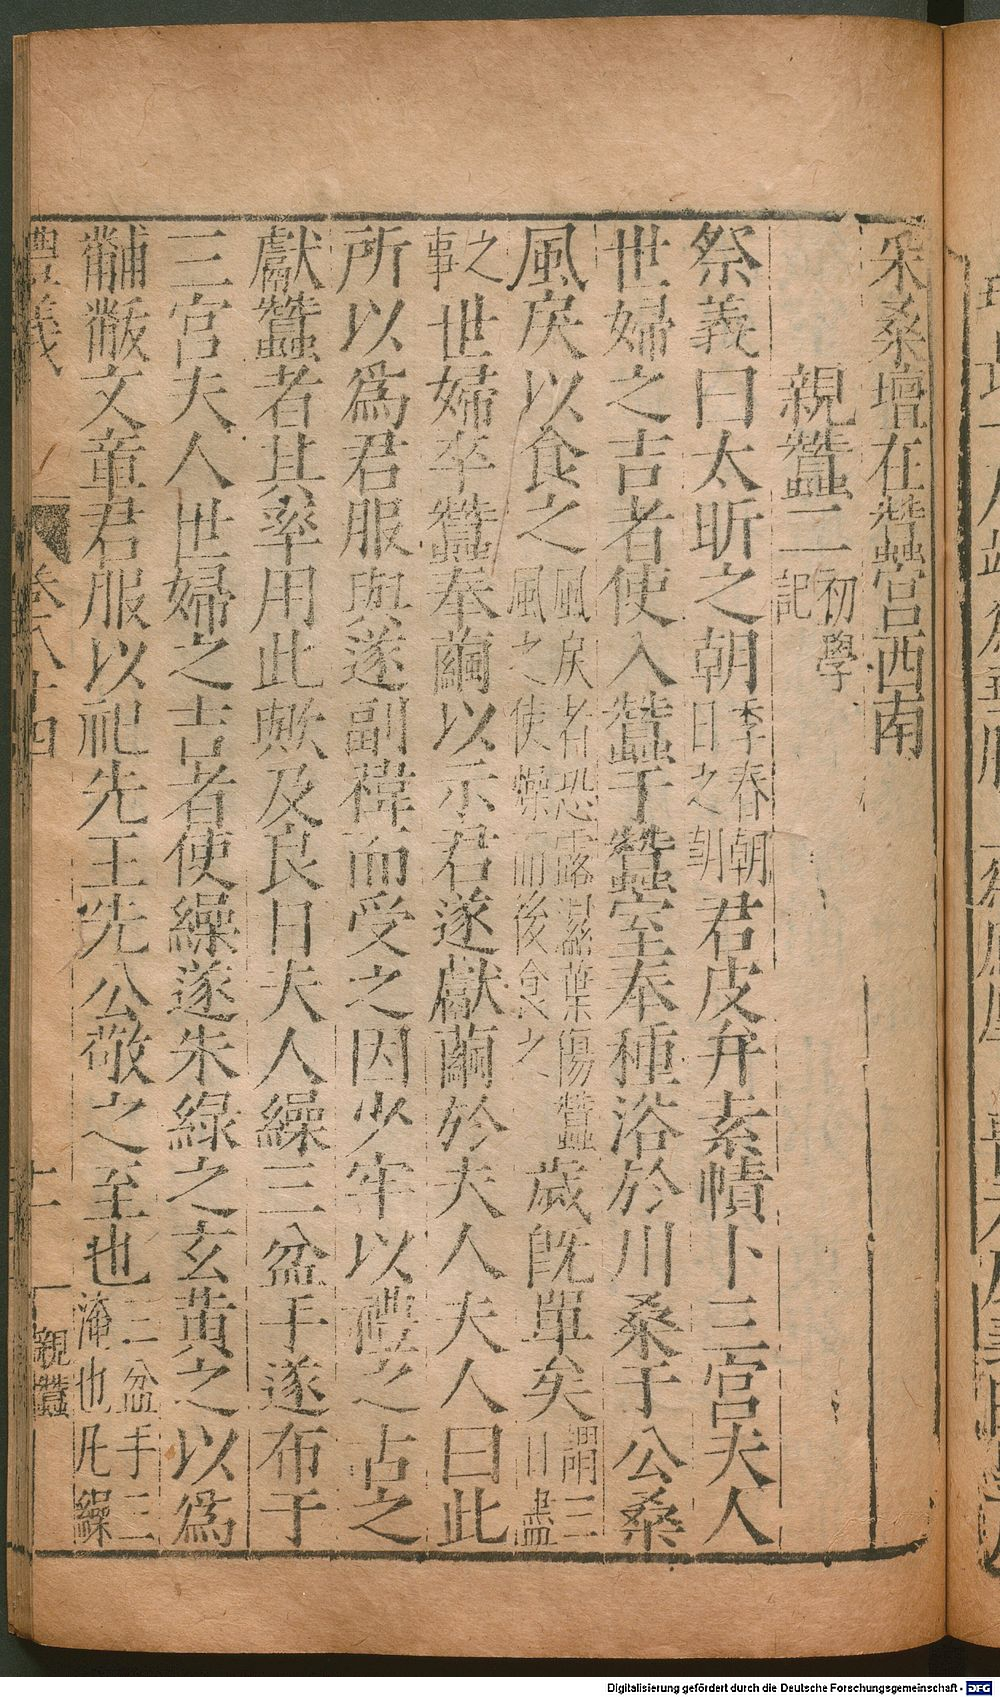 采桑壇在蠶宮西南
親蠶二初學記
祭義曰太昕之朝季春朝日之朝君皮弁素幘卜三宮夫人
世婦之吉者使入蠶于蠶室奉種浴於川桑于公桑
風戾以食之風戾者恐露濕葉傷蠶風之使燥而後食之歲旣單矣謂三月盡
之事世婦卒蠶奉繭以示君遂獻繭於夫人夫人曰此
所以為君服與遂副褘而受之因少牢以禮之古之
獻蠶者其率用此歟及良日夫人繅三盆手遂布于
三宮夫人世婦之吉者使繅遂朱綠之玄黃之以為
黼黻文章君服以祀先王先公敬之至也三盆手三淹也凡繅
典義 卷八十四 十一 親蠶
Digitalisierung gefördert durch die Deutsche Forschungsgemeinschaft - DFG